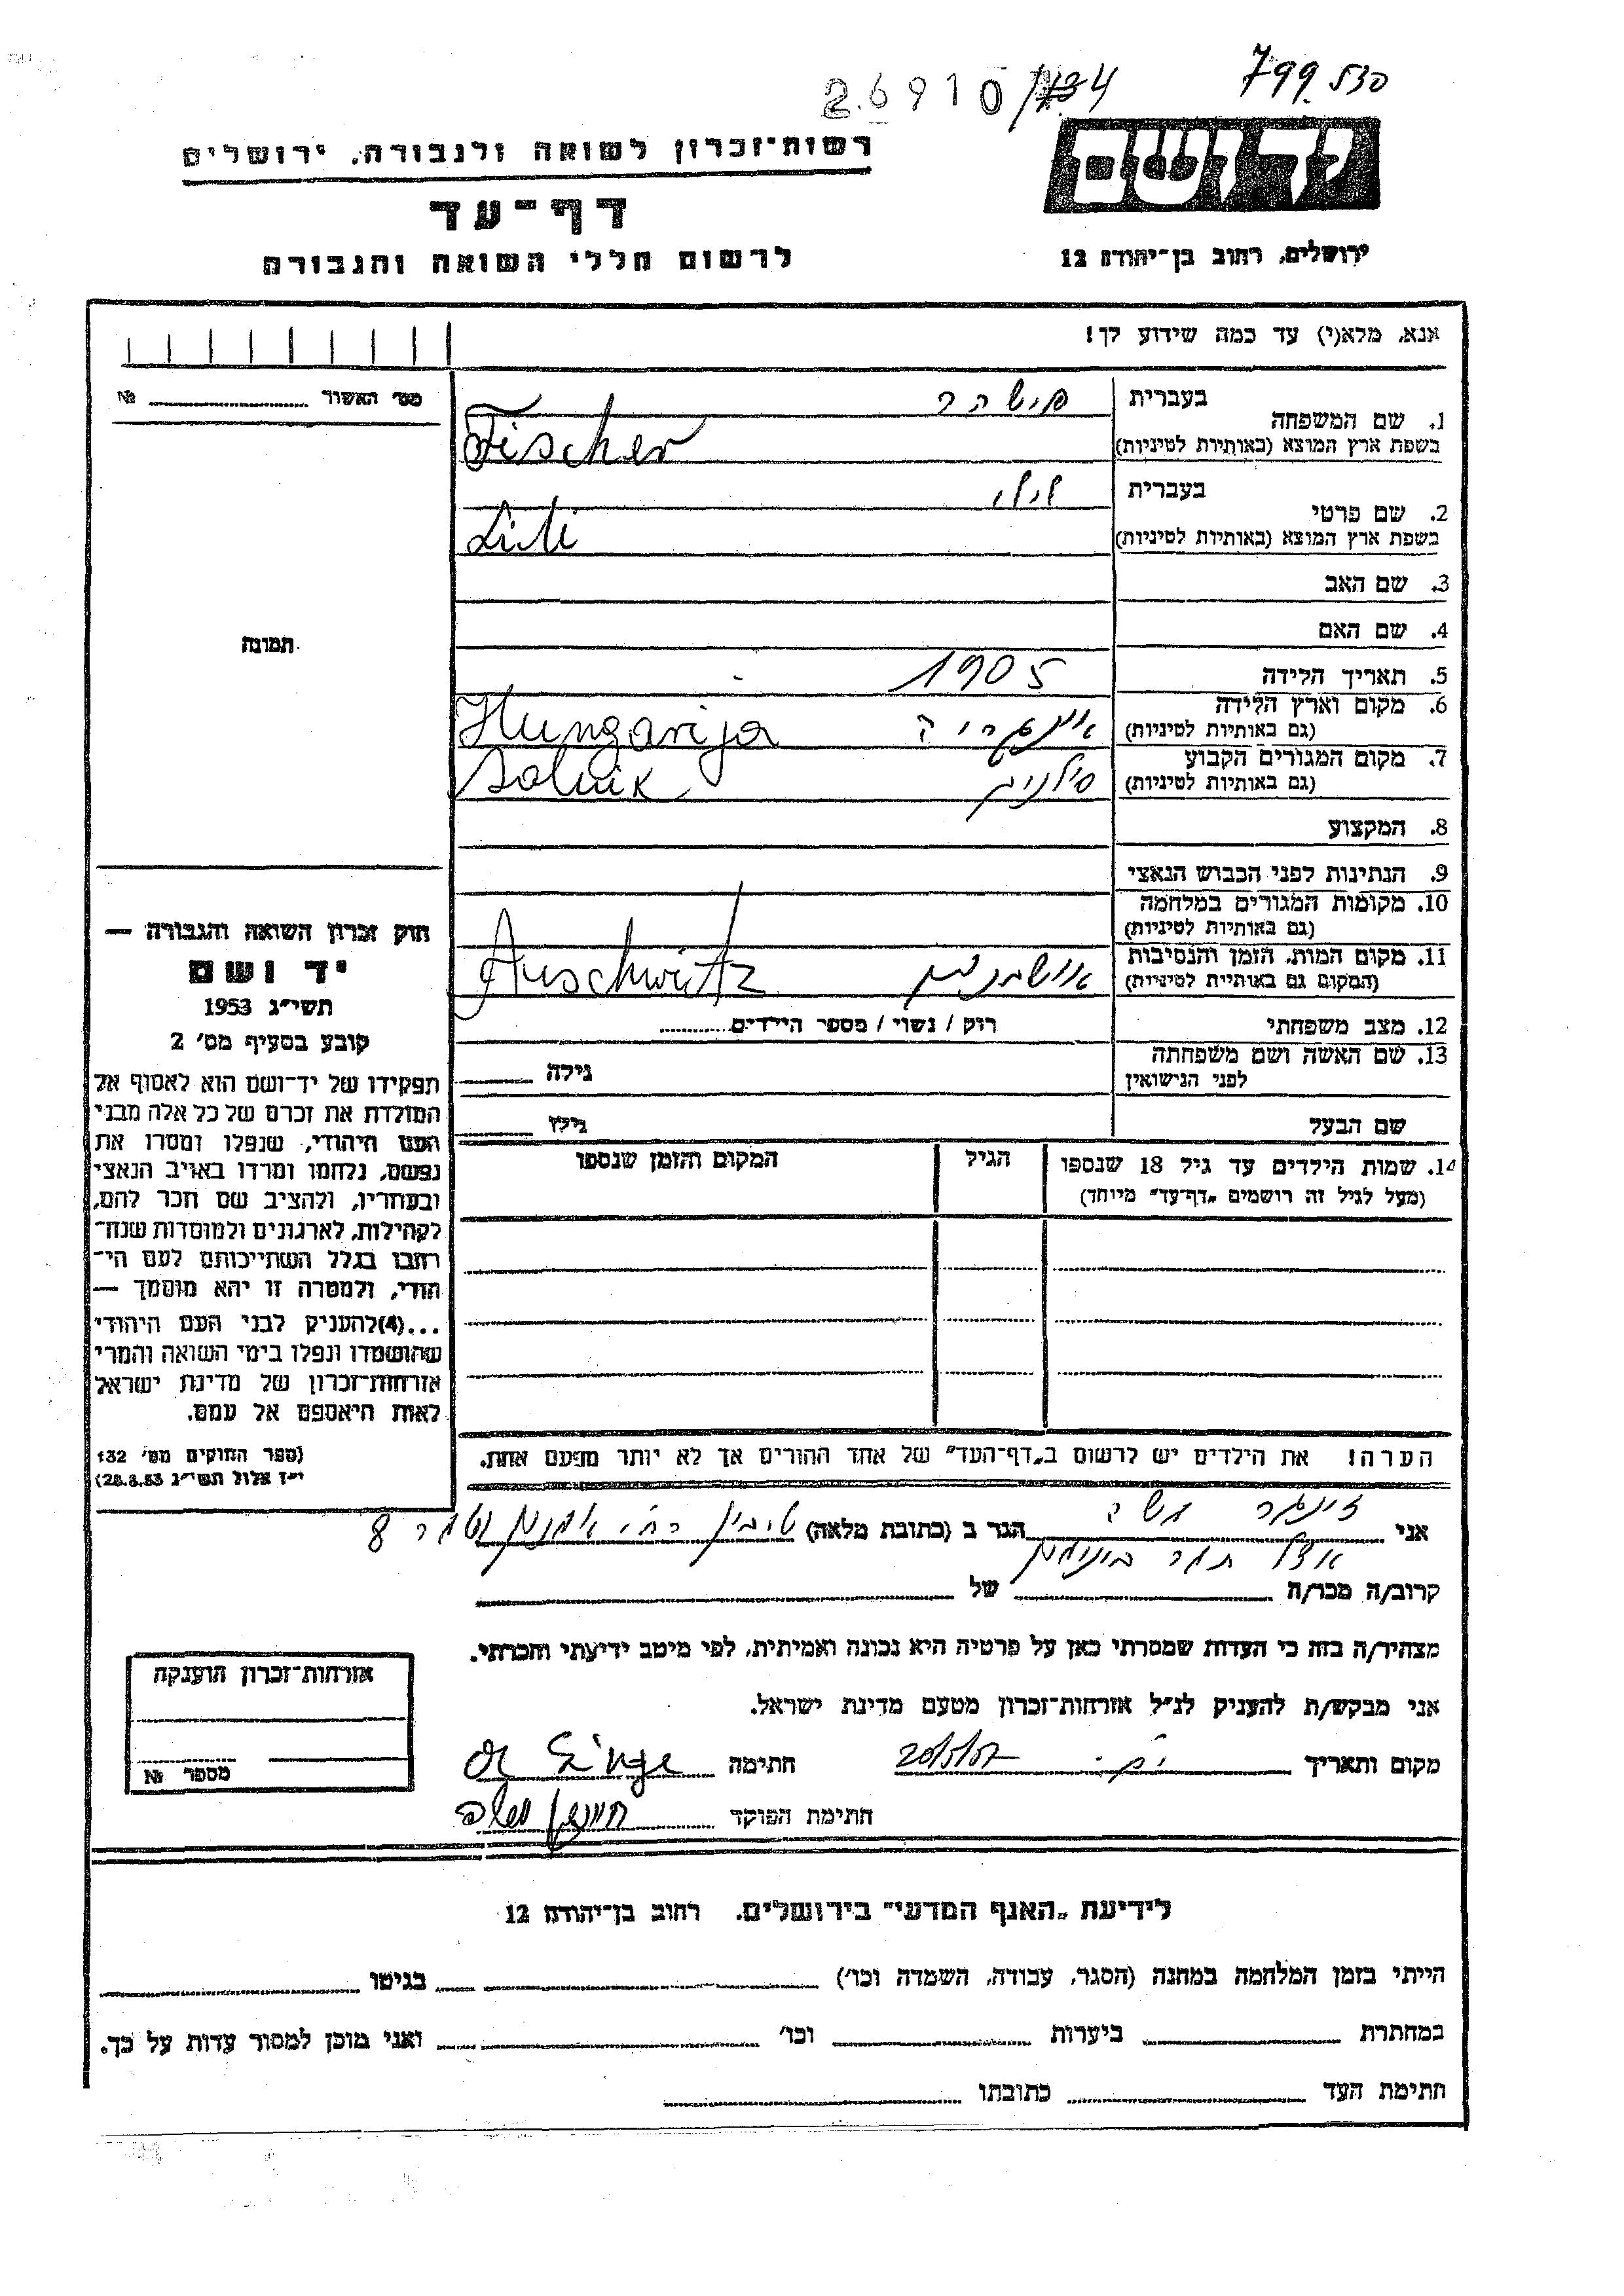 799.530
26910/434
יד ושם
רשות־זכרון לשואה ולגבורה, ירושלים
דף־עד
לרשום חללי השואה והגבורה
ירושלים, רחוב בן־יהודה 12
אנא, מלא(י) עד כמה שידוע לך!
מס׳ האשור № 
1. שם המשפחה
בעברית פישהר
בשפת ארץ המוצא (באותיות לטיניות) Fischer
2. שם פרטי
בעברית לילי
בשפת ארץ המוצא (באותיות לטיניות) Lili
3. שם האב
4. שם האם
5. תאריך הלידה 1905
6. מקום וארץ הלידה
(גם באותיות לטיניות) אונגריה Hungarija
7. מקום המגורים הקבוע
(גם באותיות לטיניות) Solnik
8. המקצוע
9. הנתינות לפני הכבוש הנאצי
10. מקומות המגורים במלחמה
(גם באותיות לטיניות)
11. מקום המות, הזמן והנסיבות
(המקום גם באותיות לטיניות) אושויץ Auschwitz
12. מצב משפחתי רווק / נשוי / מספר הילדים
13. שם האשה ושם משפחתה
לפני הנישואין גילה
שם הבעל גילו
14. שמות הילדים עד גיל 18 שנספו הגיל המקום והזמן שנספו
(מעל לגיל זה רושמים „דף־עד” מיוחד)
הערה! את הילדים יש לרשום ב„דף־העד” של אחד ההורים אך לא יותר מפעם אחת.
תמונה
חוק זכרון השואה והגבורה —
יד ושם
תשי״ג 1953
קובע בסעיף מס׳ 2
תפקידו של יד־ושם הוא לאסוף אל
המולדת את זכרם של כל אלה מבני
העם היהודי, שנפלו ומסרו את
נפשם, נלחמו ומרדו באויב הנאצי
ובעוזריו, ולהציב שם וזכר להם,
לקהילות, לארגונים ולמוסדות שנח־
רבו בגלל השתייכותם לעם הי־
הודי, ולמטרה זו יהא מוסמך —
...(4)להעניק לבני העם היהודי
שהושמדו ונפלו בימי השואה והמרי
אזרחות־זכרון של מדינת ישראל
לאות היאספם אל עמם.
(ספר החוקים מס׳ 132
י״ז אלול תשי״ג 28.8.53)
אני זינגר משה הגר ב (כתובת מלאה) 8
קרוב/ה מכר/ה של
מצהיר/ה בזה כי העדות שמסרתי כאן על פרטיה היא נכונה ואמיתית, לפי מיטב ידיעתי והכרתי.
אני מבקש/ת להעניק לנ״ל אזרחות־זכרון מטעם מדינת ישראל.
מקום ותאריך חתימה
חתימת הפוקד
אזרחות־זכרון הוענקה
מספר №
לידיעת „האגף המדעי” בירושלים. רחוב בן־יהודה 12
הייתי בזמן המלחמה במחנה (הסגר, עבודה, השמדה וכו׳) בגיטו
במחתרת ביערות וכו׳ ואני מוכן למסור עדות על כך.
חתימת העד כתובתו